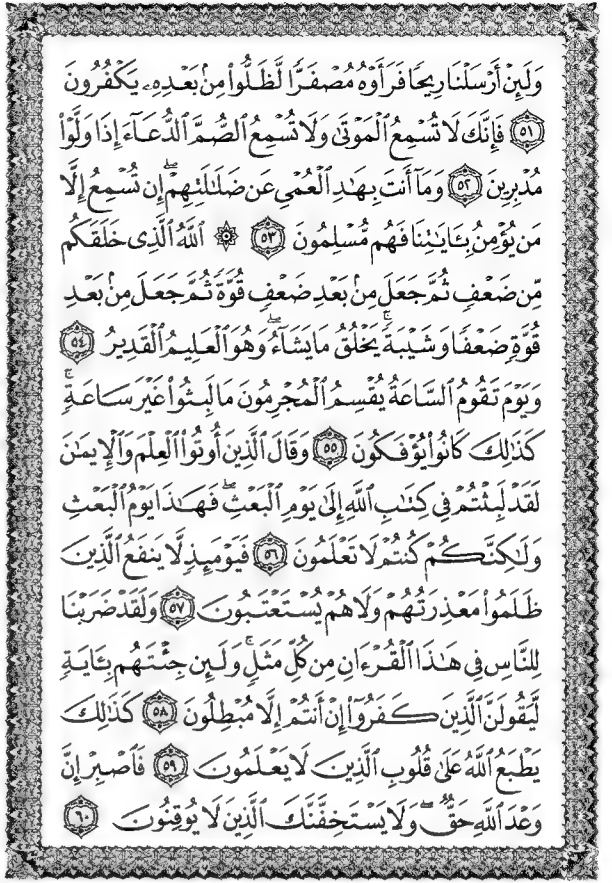 وَلَئِنۡ أَرۡسَلۡنَا رِيحٗا فَرَأَوۡهُ مُصۡفَرّٗا لَّظَلُّواْ مِنۢ بَعۡدِهِۦ يَكۡفُرُونَ
٥١ فَإِنَّكَ لَا تُسۡمِعُ ٱلۡمَوۡتَىٰ وَلَا تُسۡمِعُ ٱلصُّمَّ ٱلدُّعَآءَ إِذَا وَلَّوۡاْ
مُدۡبِرِينَ ٥٢ وَمَآ أَنتَ بِهَٰدِ ٱلۡعُمۡيِ عَن ضَلَٰلَتِهِمۡۖ إِن تُسۡمِعُ إِلَّا
مَن يُؤۡمِنُ بِـَٔايَٰتِنَا فَهُم مُّسۡلِمُونَ ٥٣ ۞ ٱللَّهُ ٱلَّذِي خَلَقَكُم
مِّن ضَعۡفٖ ثُمَّ جَعَلَ مِنۢ بَعۡدِ ضَعۡفٖ قُوَّةٗ ثُمَّ جَعَلَ مِنۢ بَعۡدِ
قُوَّةٖ ضَعۡفٗا وَشَيۡبَةٗۚ يَخۡلُقُ مَا يَشَآءُۖ وَهُوَ ٱلۡعَلِيمُ ٱلۡقَدِيرُ ٥٤
وَيَوۡمَ تَقُومُ ٱلسَّاعَةُ يُقۡسِمُ ٱلۡمُجۡرِمُونَ مَا لَبِثُواْ غَيۡرَ سَاعَةٖۚ
كَذَٰلِكَ كَانُواْ يُؤۡفَكُونَ ٥٥ وَقَالَ ٱلَّذِينَ أُوتُواْ ٱلۡعِلۡمَ وَٱلۡإِيمَٰنَ
لَقَدۡ لَبِثۡتُمۡ فِي كِتَٰبِ ٱللَّهِ إِلَىٰ يَوۡمِ ٱلۡبَعۡثِۖ فَهَٰذَا يَوۡمُ ٱلۡبَعۡثِ
وَلَٰكِنَّكُمۡ كُنتُمۡ لَا تَعۡلَمُونَ ٥٦ فَيَوۡمَئِذٖ لَّا يَنفَعُ ٱلَّذِينَ
ظَلَمُواْ مَعۡذِرَتُهُمۡ وَلَا هُمۡ يُسۡتَعۡتَبُونَ ٥٧ وَلَقَدۡ ضَرَبۡنَا
لِلنَّاسِ فِي هَٰذَا ٱلۡقُرۡءَانِ مِن كُلِّ مَثَلٖۚ وَلَئِن جِئۡتَهُم بِـَٔايَةٖ
لَّيَقُولَنَّ ٱلَّذِينَ كَفَرُوٓاْ إِنۡ أَنتُمۡ إِلَّا مُبۡطِلُونَ ٥٨ كَذَٰلِكَ
يَطۡبَعُ ٱللَّهُ عَلَىٰ قُلُوبِ ٱلَّذِينَ لَا يَعۡلَمُونَ ٥٩ فَٱصۡبِرۡ إِنَّ
وَعۡدَ ٱللَّهِ حَقّٞۖ وَلَا يَسۡتَخِفَّنَّكَ ٱلَّذِينَ لَا يُوقِنُونَ ٦٠